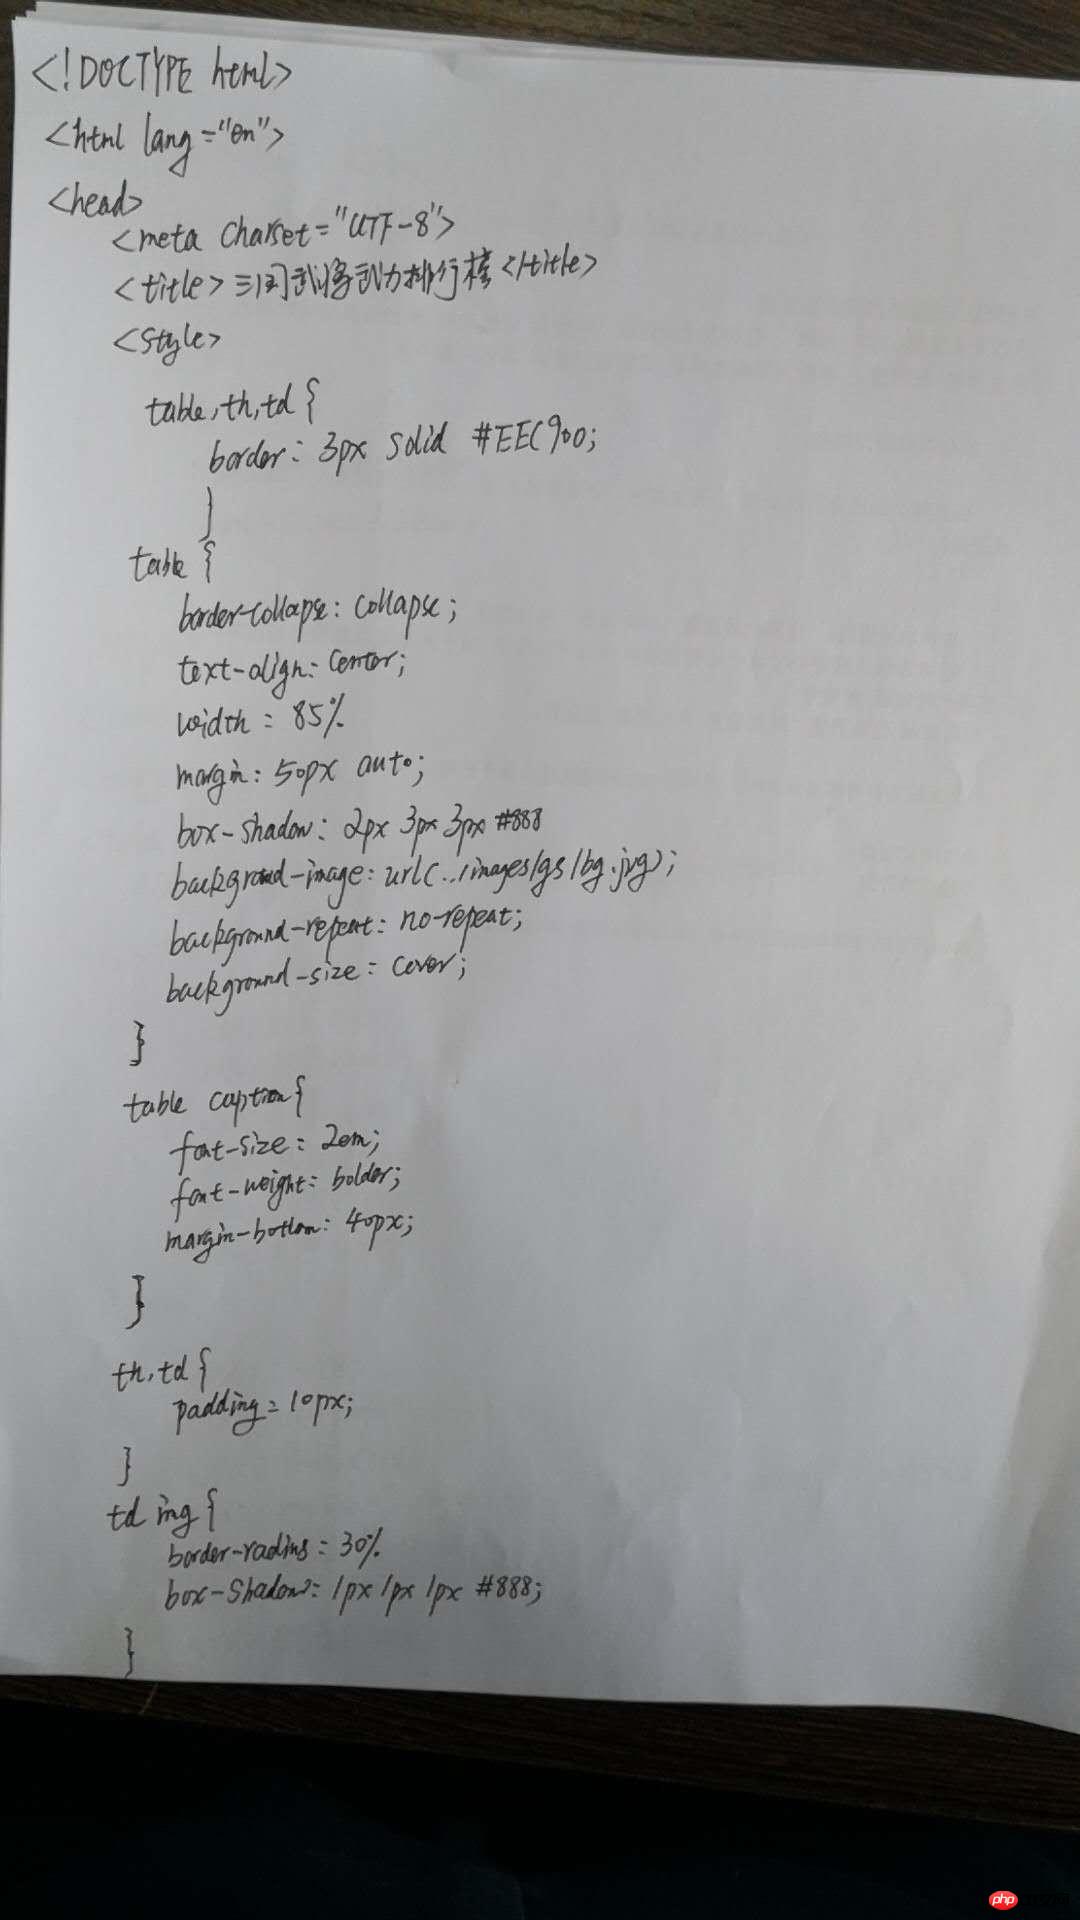 <!DOCTYPE html>
<html lang="en">
<head>
<meta charset="UTF-8">
<title>三国武将武力排行榜</title>
<style>
table,th,td {
border: 3px solid #EEC900;
}
table {
border-collapse: collapse;
text-align: center;
width: 85%
margin: 50px auto;
box-shadow: 2px 3px 3px #888
background-image: url(../images/gs/bg.jpg);
background-repeat: no-repeat;
background-size: cover;
}
table caption{
font-size: 2em;
font-weight: bolder;
margin-bottom: 40px;
}
th,td {
padding: 10px;
}
td img {
border-radius: 30%
box-shadow: 1px 1px 1px #888;
}
php